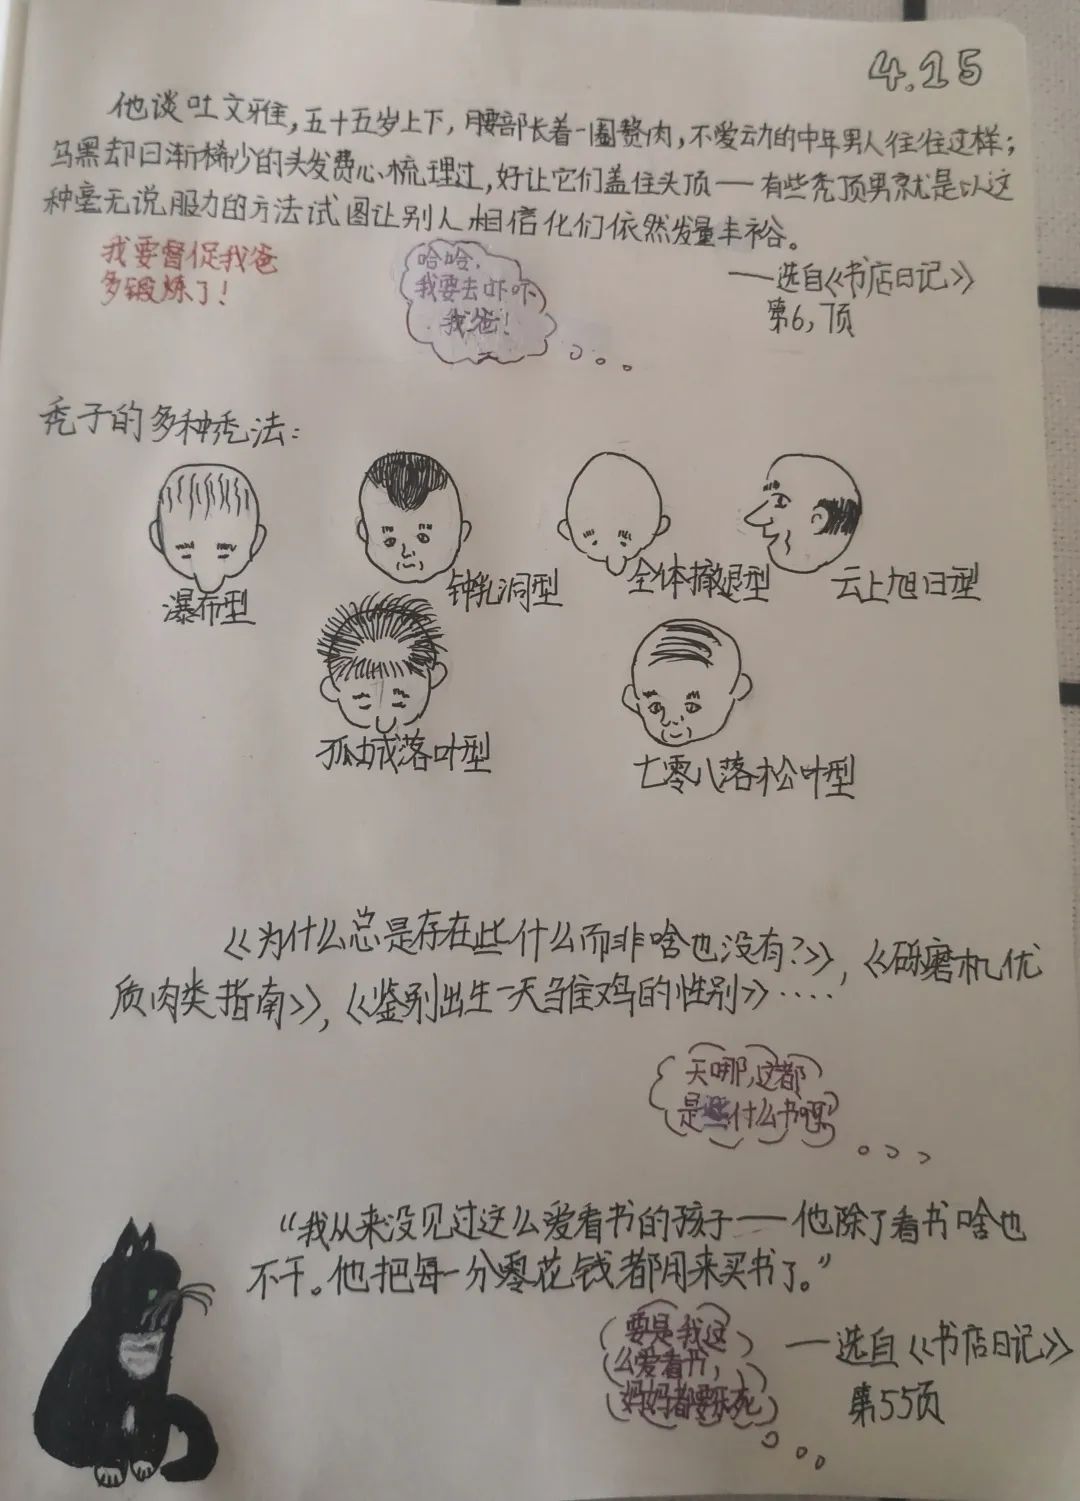 4.15
他谈吐文雅，五十五岁上下，腰部长着一圈赘肉，不爱动的中年男人往往这样；
乌黑却日渐稀少的头发费心梳理过，好让它们盖住头顶——有些秃顶男就是以这
种毫无说服力的方法试图让别人相信他们依然发量丰裕。
我要督促我爸
多锻炼了！
哈哈，
我要去吓吓
我爸！
——选自《书店日记》
第6,7页
秃子的多种秃法：
瀑布型
钟乳洞型
全体撤退型
云上旭日型
孤城落叶型
七零八落松叶型
《为什么总是存在些什么而非啥也没有？》，《砾磨机优
质肉类指南》，《鉴别出生一天雏鸡的性别》……
天哪，这都
是些什么书呀
“我从来没见过这么爱看书的孩子——他除了看书啥也
不干。他把每一分零花钱都用来买书了。”
要是我这
么爱看书，
妈妈都要乐死
——选自《书店日记》
第55页